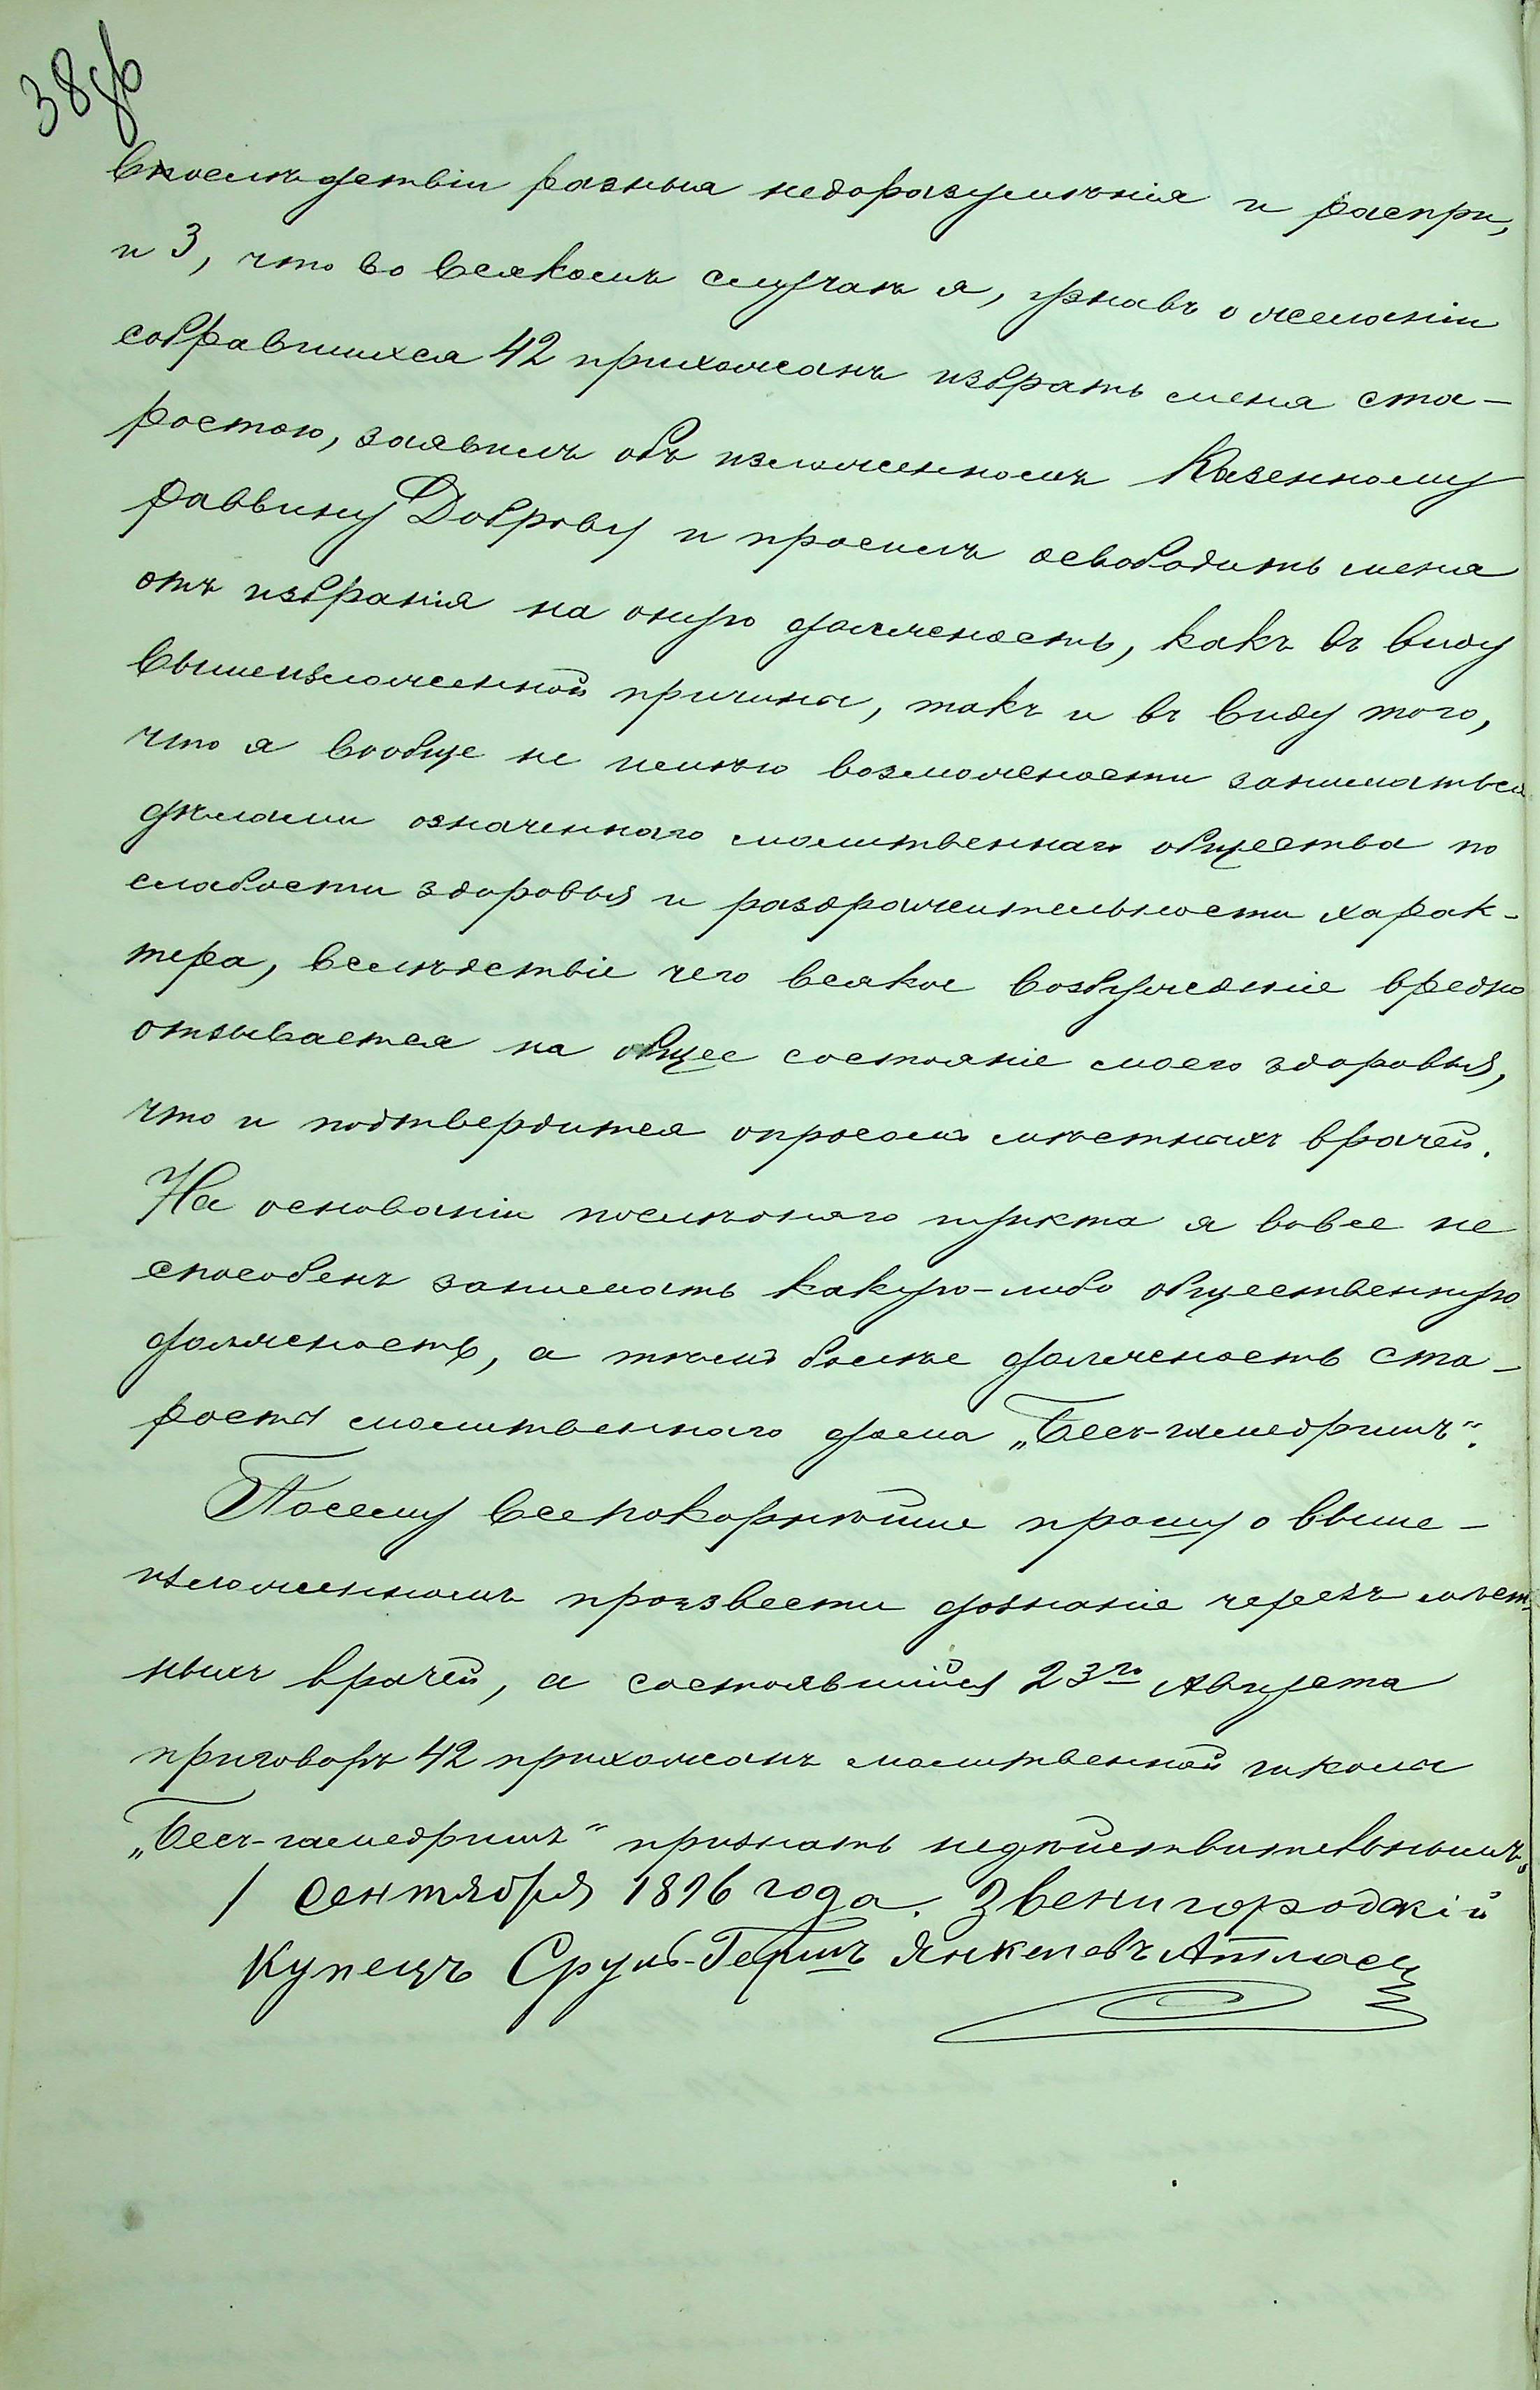 38 об
впослѣдствіи разныя недоразумѣнія и распри,
и 3, что во всякомъ случаѣ я, узнавъ о желаніи
собравшихся 42 прихожанъ избрать меня ста-
ростою, заявилъ объ изложенномъ Казенному
раввину Доброву и просилъ освободить меня
отъ избранія на оную должность, какъ въ виду
вышеизложенной причины, такъ и въ виду того,
что я вообще не имѣю возможности заниматься
дѣлами означеннаго молитвеннаго общества по
слабости здоровья и раздражительности харак-
тера, вслѣдствіе чего всякое возбужденіе вредно
отзывается на общее состояніе моего здоровья,
что и подтвердится опросомъ мѣстныхъ врачей.
На основаніи послѣдняго пункта я вовсе не
способенъ занимать какую-либо общественную
должность, а тѣмъ болѣе должность ста-
росты молитвеннаго дома „Бесъ-гамедришъ“.
Посему всепокорнѣйше прошу о выше-
изложенномъ произвести дознаніе черезъ мѣст-
ныхъ врачей, а состоявшійся 23го Августа
приговоръ 42 прихожанъ молитвенной школы
„Бесъ-гамедришъ“ признать недѣйствительнымъ.
1 Сентября 1896 года. Звенигородскій
Купецъ Сруль-Гершъ Янкелевъ Атласъ